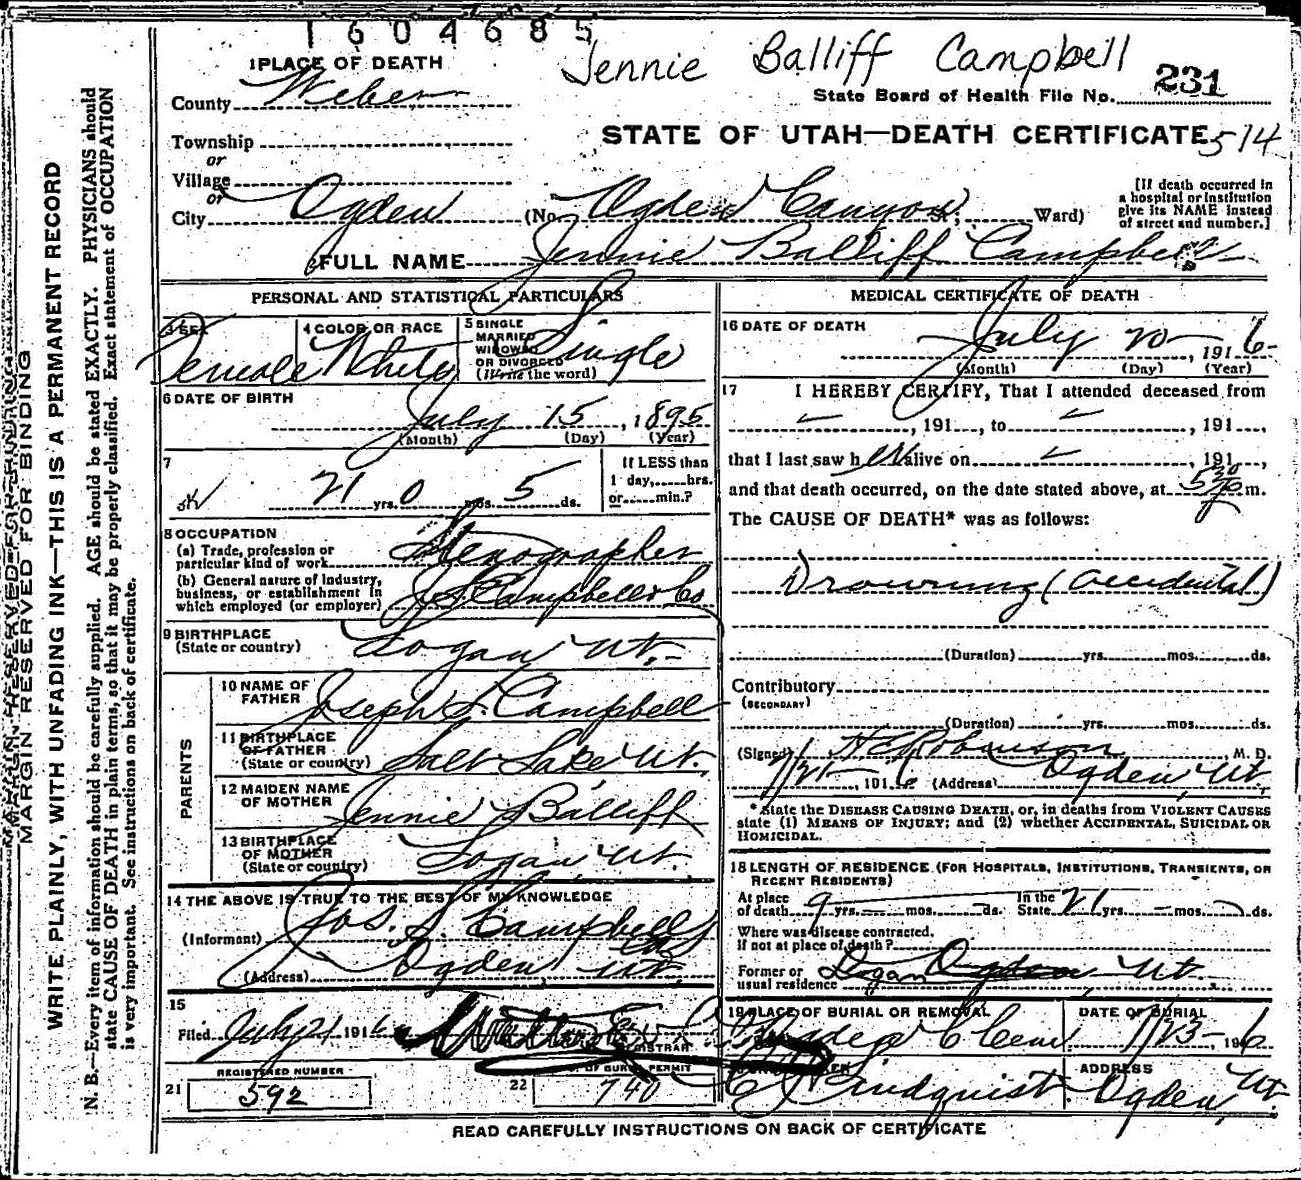 1604685
Jennie Balliff Campbell
231
State Board of Health File No.
1 PLACE OF DEATH
County Weber
STATE OF UTAH—DEATH CERTIFICATE 514
Township
or
Village
or
City Ogden (No. Ogden Canyon; Ward)
[If death occurred in
a hospital or institution
give its NAME instead
of street and number.]
FULL NAME Jennie Balliff Campbell
PERSONAL AND STATISTICAL PARTICULARS
3 SEX Female
4 COLOR OR RACE White
5 SINGLE
MARRIED
WIDOWED
OR DIVORCED
(Write the word) Single
6 DATE OF BIRTH
July 15, 1895
(Month) (Day) (Year)
7
21 yrs. 0 mos. 5 ds.
If LESS than
1 day, hrs.
or min.?
8 OCCUPATION
(a) Trade, profession or
particular kind of work Stenographer
(b) General nature of Industry,
business, or establishment in
which employed (or employer) J S Campbell & Co
9 BIRTHPLACE
(State or country) Logan Ut.
PARENTS
10 NAME OF
FATHER Joseph S. Campbell
11 BIRTHPLACE
OF FATHER
(State or country) Salt Lake Ut.
12 MAIDEN NAME
OF MOTHER Jennie Balliff
13 BIRTHPLACE
OF MOTHER
(State or country) Logan, Ut.
14 THE ABOVE IS TRUE TO THE BEST OF MY KNOWLEDGE
(Informant) Jos. S. Campbell
(Address) Ogden Ut.
15
Filed July 21 1916
REGISTRAR
REGISTERED NUMBER
21 592
OF BURIAL PERMIT
22 740
MEDICAL CERTIFICATE OF DEATH
16 DATE OF DEATH
July 20, 1916
(Month) (Day) (Year)
17 I HEREBY CERTIFY, That I attended deceased from
, 191 , to , 191 ,
that I last saw h alive on , 191 ,
and that death occurred, on the date stated above, at 5 30 p m.
The CAUSE OF DEATH* was as follows:
Drowning (Accidental)
(Duration) yrs. mos. ds.
Contributory
(SECONDARY)
(Duration) yrs. mos. ds.
(Signed) Robinson M. D.
7/21, 1916 (Address) Ogden Ut
*State the DISEASE CAUSING DEATH, or, in deaths from VIOLENT CAUSES
state (1) MEANS OF INJURY; and (2) whether ACCIDENTAL, SUICIDAL OR
HOMICIDAL.
18 LENGTH OF RESIDENCE (FOR HOSPITALS, INSTITUTIONS, TRANSIENTS, OR
RECENT RESIDENTS)
At place
of death 9 yrs. mos. ds. In the
State 21 yrs. mos. ds.
Where was disease contracted.
If not at place of death?
Former or
usual residence Logan Ogden Ut.
19 PLACE OF BURIAL OR REMOVAL
DATE OF BURIAL
7/23-1916
Lindquist
ADDRESS
Ogden Ut
READ CAREFULLY INSTRUCTIONS ON BACK OF CERTIFICATE
MARGIN RESERVED FOR BINDING
WRITE PLAINLY, WITH UNFADING INK—THIS IS A PERMANENT RECORD
N. B.—Every item of information should be carefully supplied. AGE should be stated EXACTLY. PHYSICIANS should
state CAUSE OF DEATH in plain terms, so that it may be properly classified. Exact statement of OCCUPATION
is very important. See instructions on back of certificate.